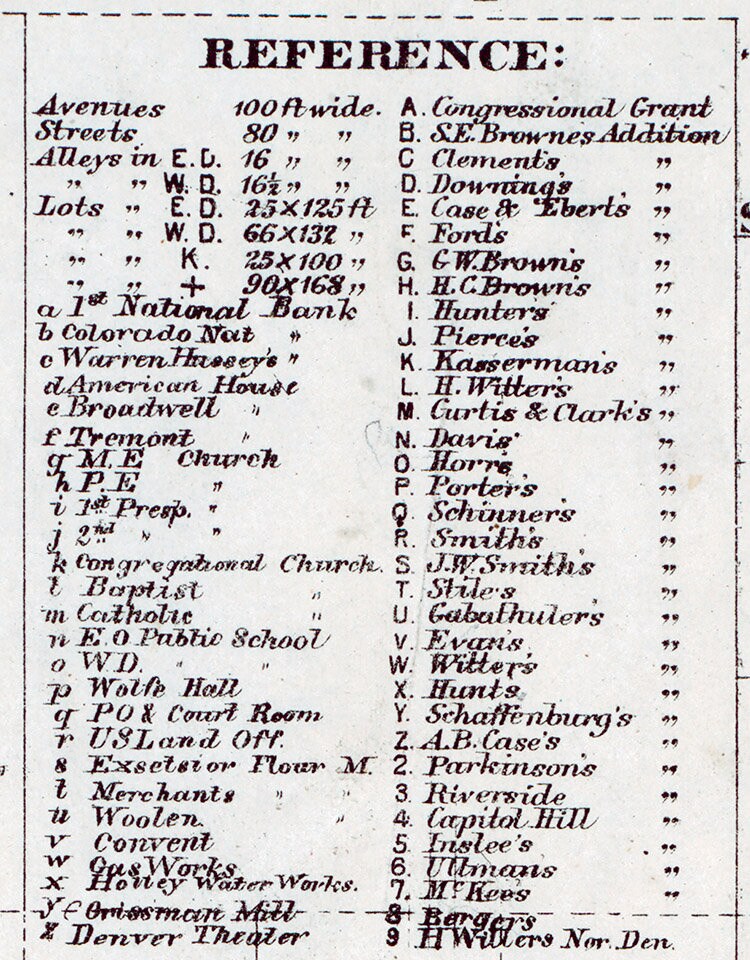 REFERENCE:
Avenues 100 ft wide.
Streets 80 " "
Alleys in E.D. 16 " "
" " W.D. 16½ " "
Lots " E.D. 25X125 ft
" " W.D. 66X132 "
" " K. 25X100 "
" " + 90X168 "
a 1st National Bank
b Colorado Nat "
c Warren Hussey's "
d American House
e Broadwell "
f Tremont "
g M.E Church
h P.E "
i 1st Presp. "
j 2nd " "
k Congregational Church.
l Baptist "
m Catholic "
n E.O Public School
o W.D. " "
p Wolfe Hall
q PO & Court Room
r US Land Off.
s Exselsior Flour M.
t Merchants " "
u Woolen "
v Convent
w Gas Works
x Holley Water Works.
y Mill
z Denver Theater
A. Congressional Grant
B. S.E. Brownes Addition
C Clement's "
D. Downing's "
E. Case & Ebert's "
F. Ford's "
G. G.W. Brown's "
H. H.C. Brown's "
I. Hunter's "
J. Pierce's "
K. Kasserman's "
L. H. Witter's "
M. Curtis & Clark's "
N. Davis' "
O. Horrs "
P. Porter's "
Q. Schinner's "
R. Smith's "
S. J.W. Smith's "
T. Stile's "
U. Gabathuler's "
V. Evan's "
W. Witter's "
X. Hunts "
Y. Schaffenburg's "
Z. A.B. Case's "
2. Parkinson's "
3. Riverside "
4. Capitol Hill "
5. Inslee's "
6. Ullmans "
7. McKees "
8 Bergers
9 H Witters Nor. Den.